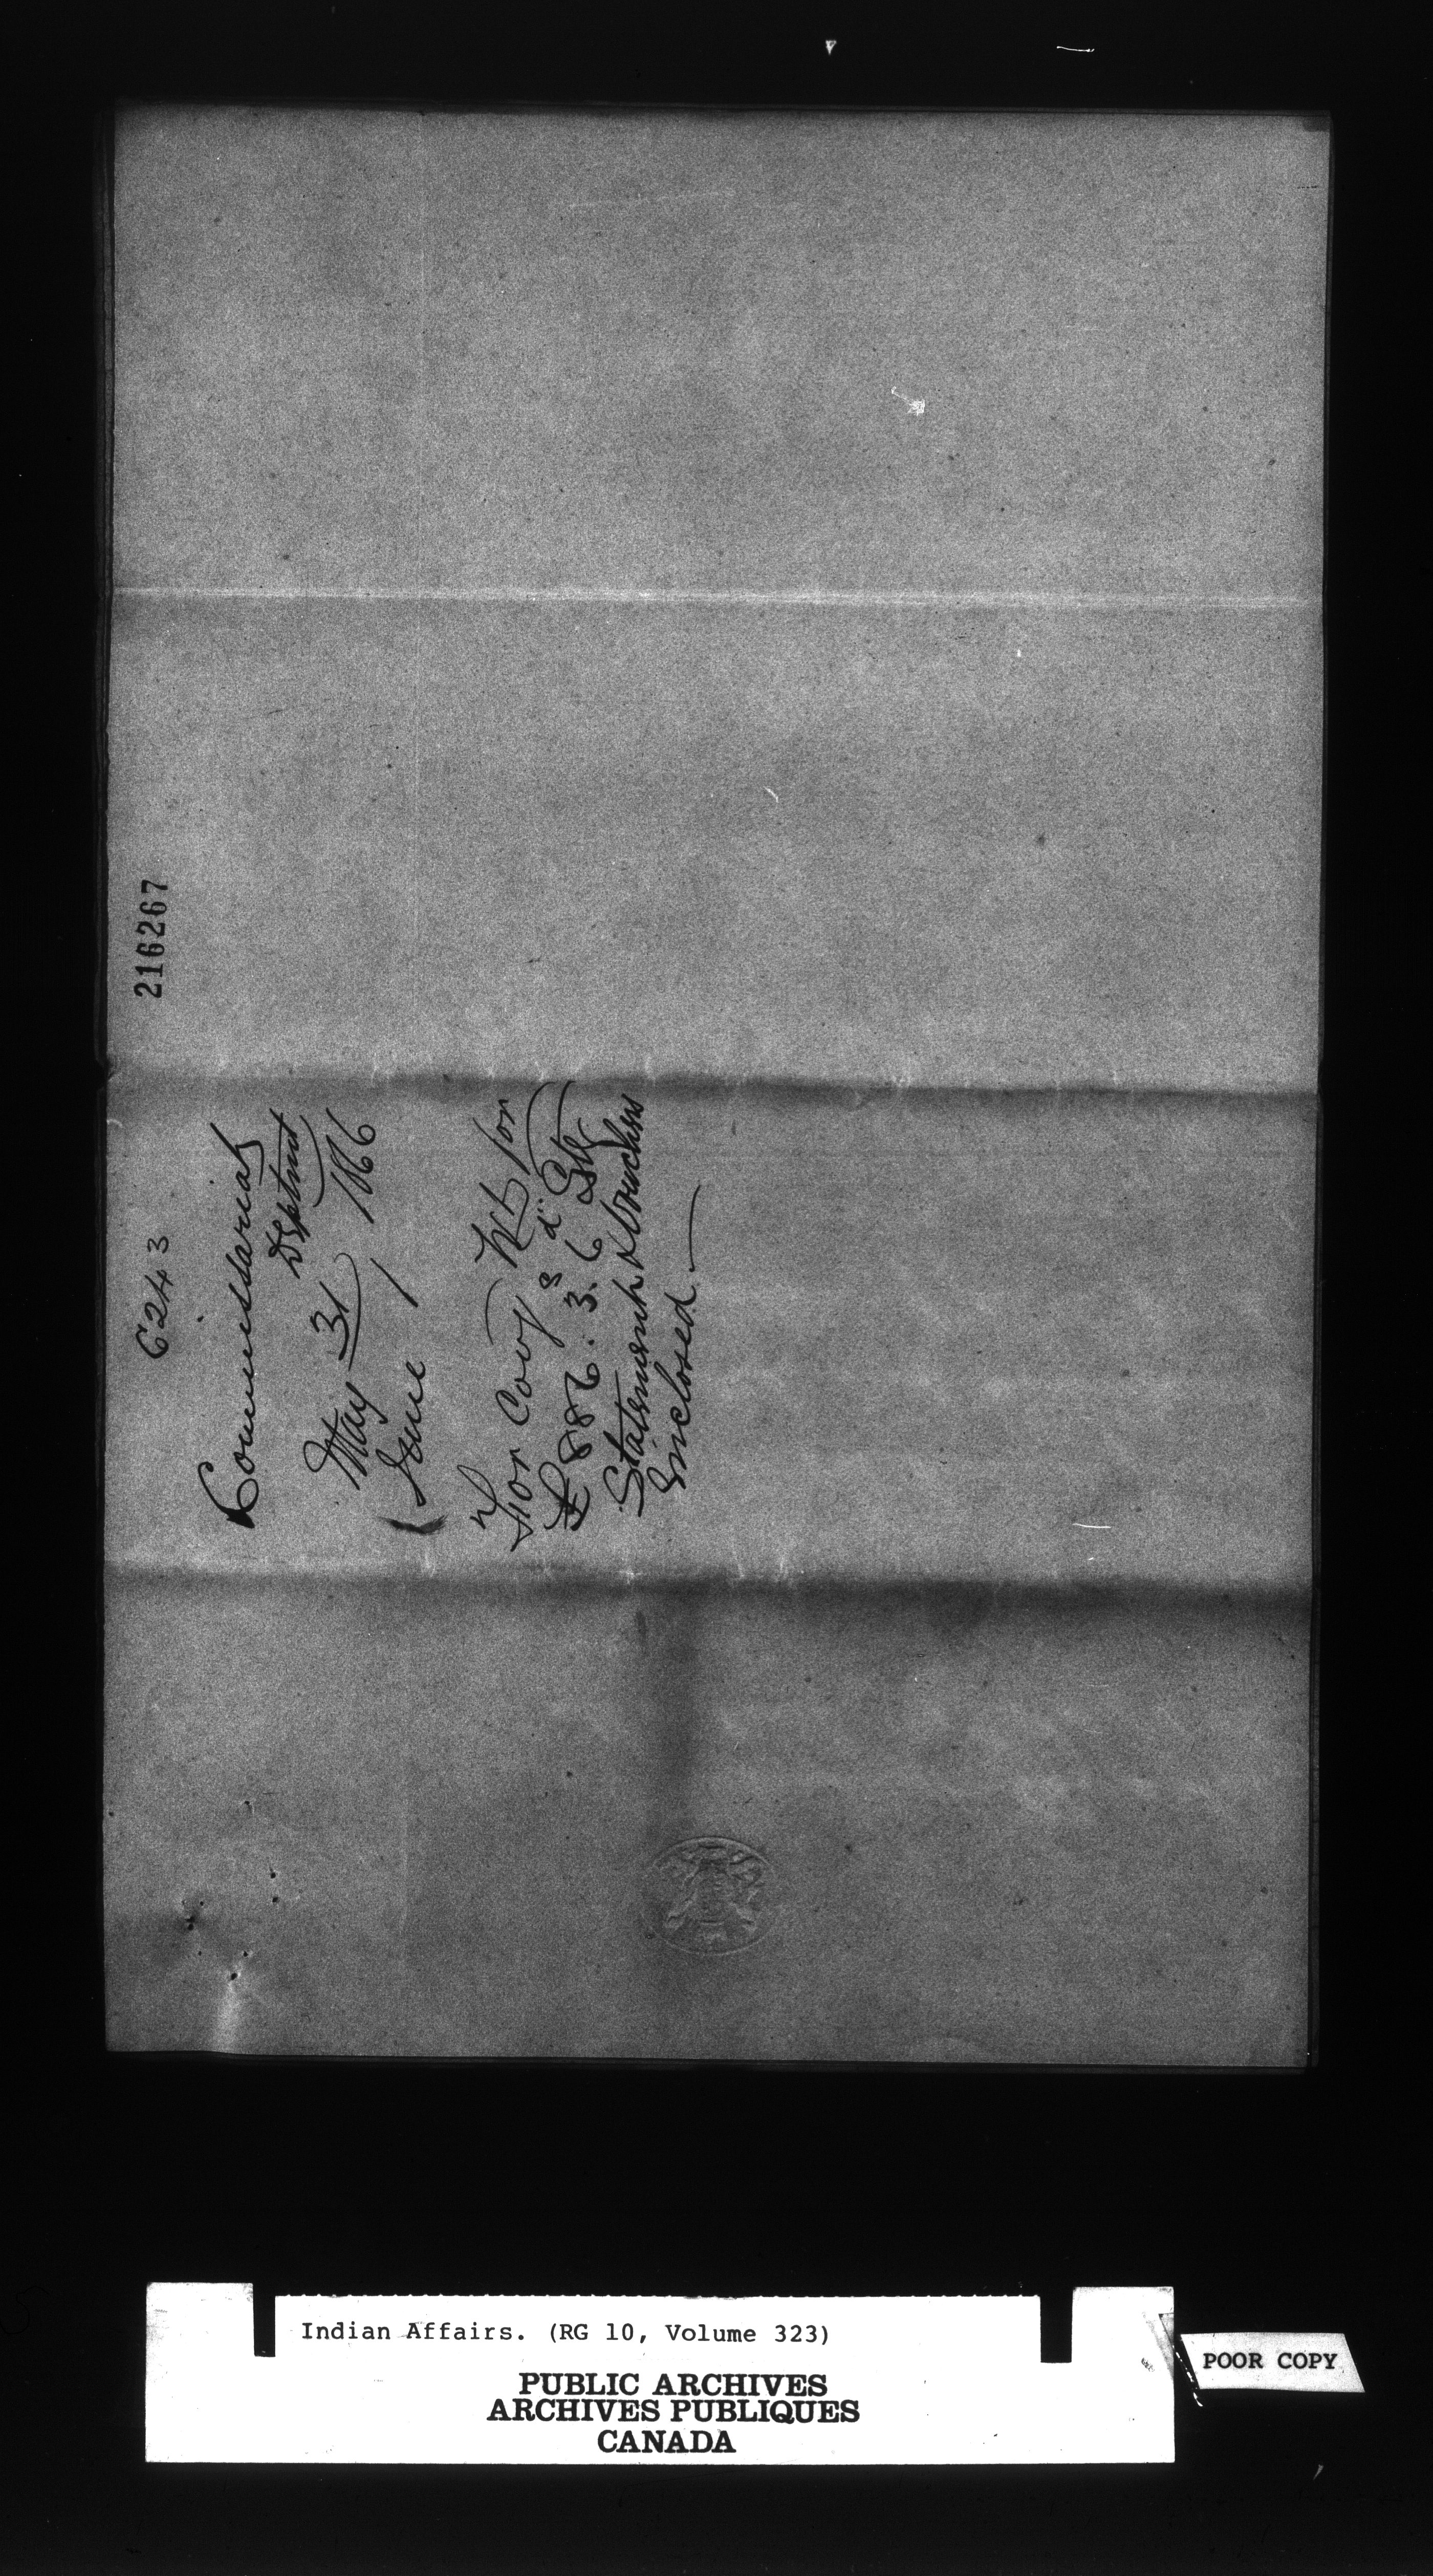 216267
C243
Commissariat
Deptmt
May 31 186
June 1
For Covg Wt for
£886.3.6 Stg
s d
Statement & Vouchers
Enclosed
Indian Affairs. (RG 10, Volume 323)
PUBLIC ARCHIVES
ARCHIVES PUBLIQUES
CANADA
POOR COPY